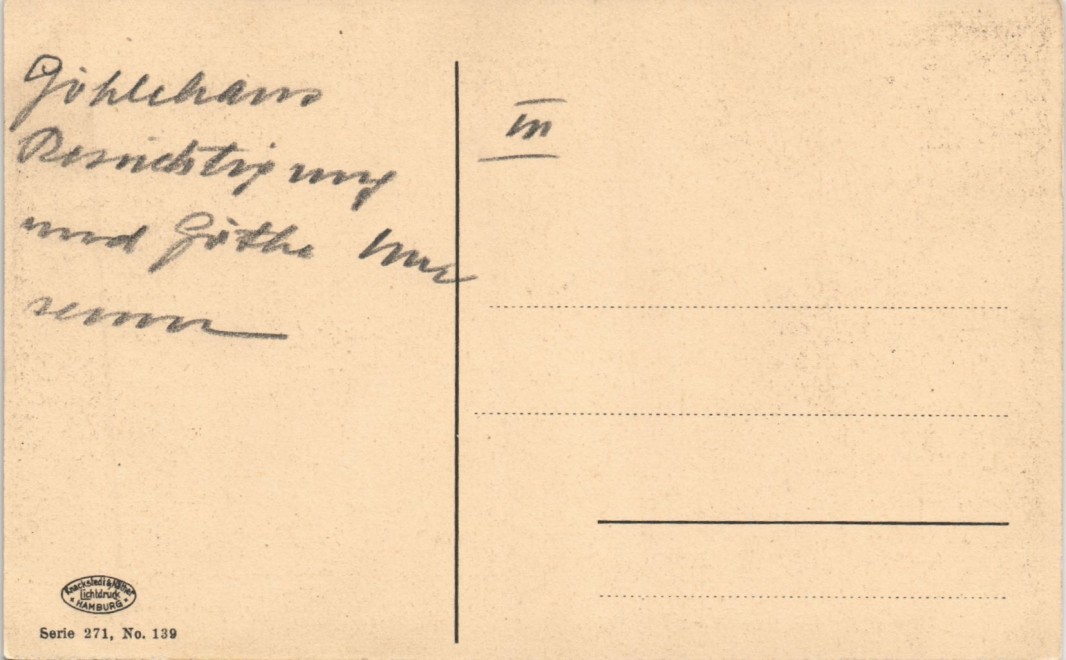 Göhlehaus
Besichtigung
und Göthe Mu
seum
III
Knackstedt & Näther
Lichtdruck
HAMBURG
Serie 271, No. 139